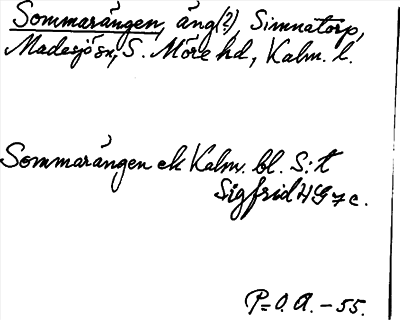 Sommarängen, äng(?), Simnatorp,
Madesjö sn, S. Möre hd, Kalm. l.
Sommarängen ek Kalm. bl. S:t
Sigfrid 4G7c.
P=O.A. -55.